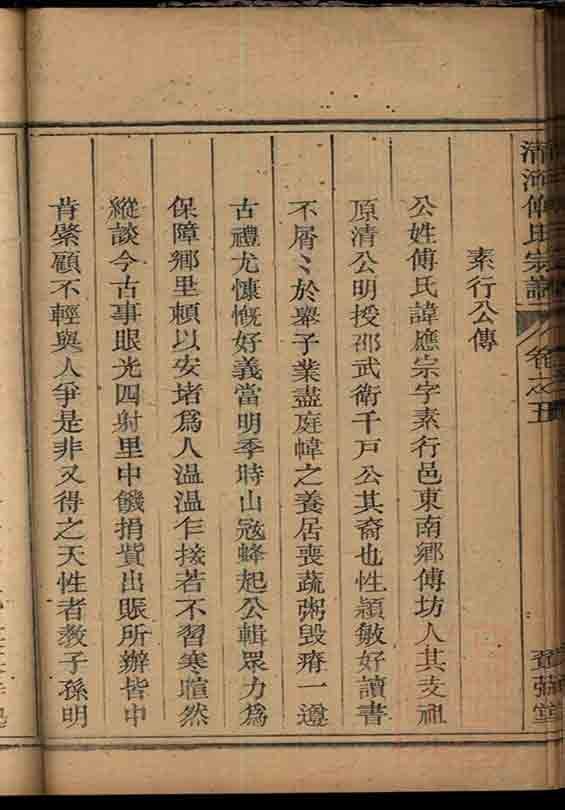 清河傅氏宗譜
卷之五
素行公傳
公姓傅氏諱應宗字素行邑東南鄉傅坊人其支祖
原清公明授邵武衛千戶公其裔也性穎敏好讀書
不屑〻於舉子業盡庭幃之養居喪蔬粥毀瘠一遵
古禮尤慷慨好義當明季時山寇蜂起公輯眾力為
保障鄉里賴以安堵為人溫溫乍接若不習寒暄然
縱談今古事眼光四射里中饑捐貲出賑所辦皆中
肯綮顧不輕與人爭是非又得之天性者教子孫明